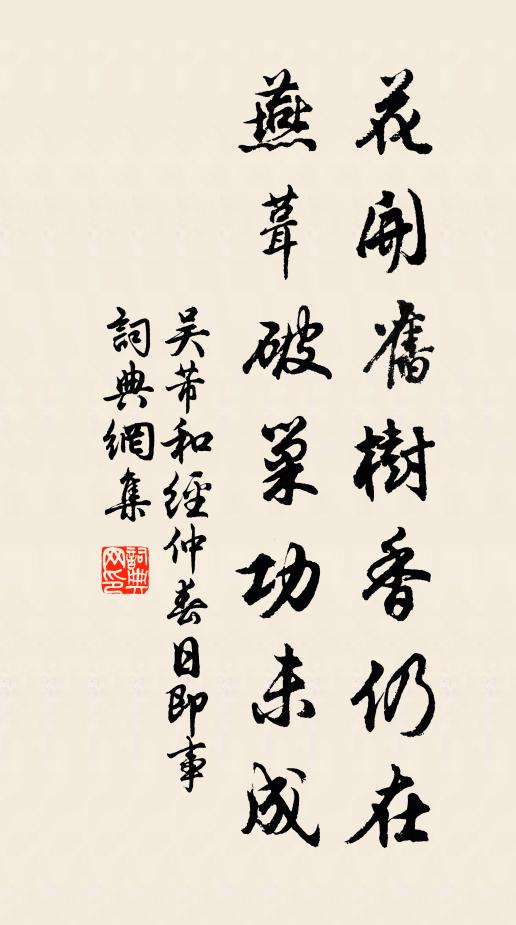 花開舊樹香仍在
燕葺破巢功未成
吴芾和經仲春日即事
詞典網集
詞典網印